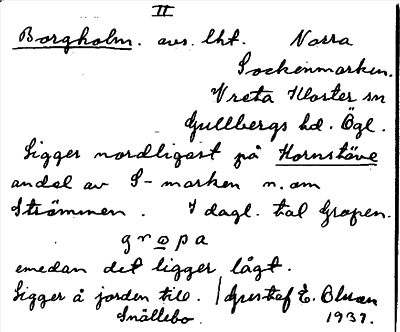 II
Borgholm. avs. lht. Norra
Sockenmarken.
Vreta Kloster sn
Gullbergs hd. Ögl.
Ligger nordligast på Hornstäve
andel av S-marken n. om
Strömmen. I dagl. tal Gropen.
gropa
emedan det ligger lågt.
Ligger å jorden till. / Gustaf E. Bluan
Snällebo 1937.